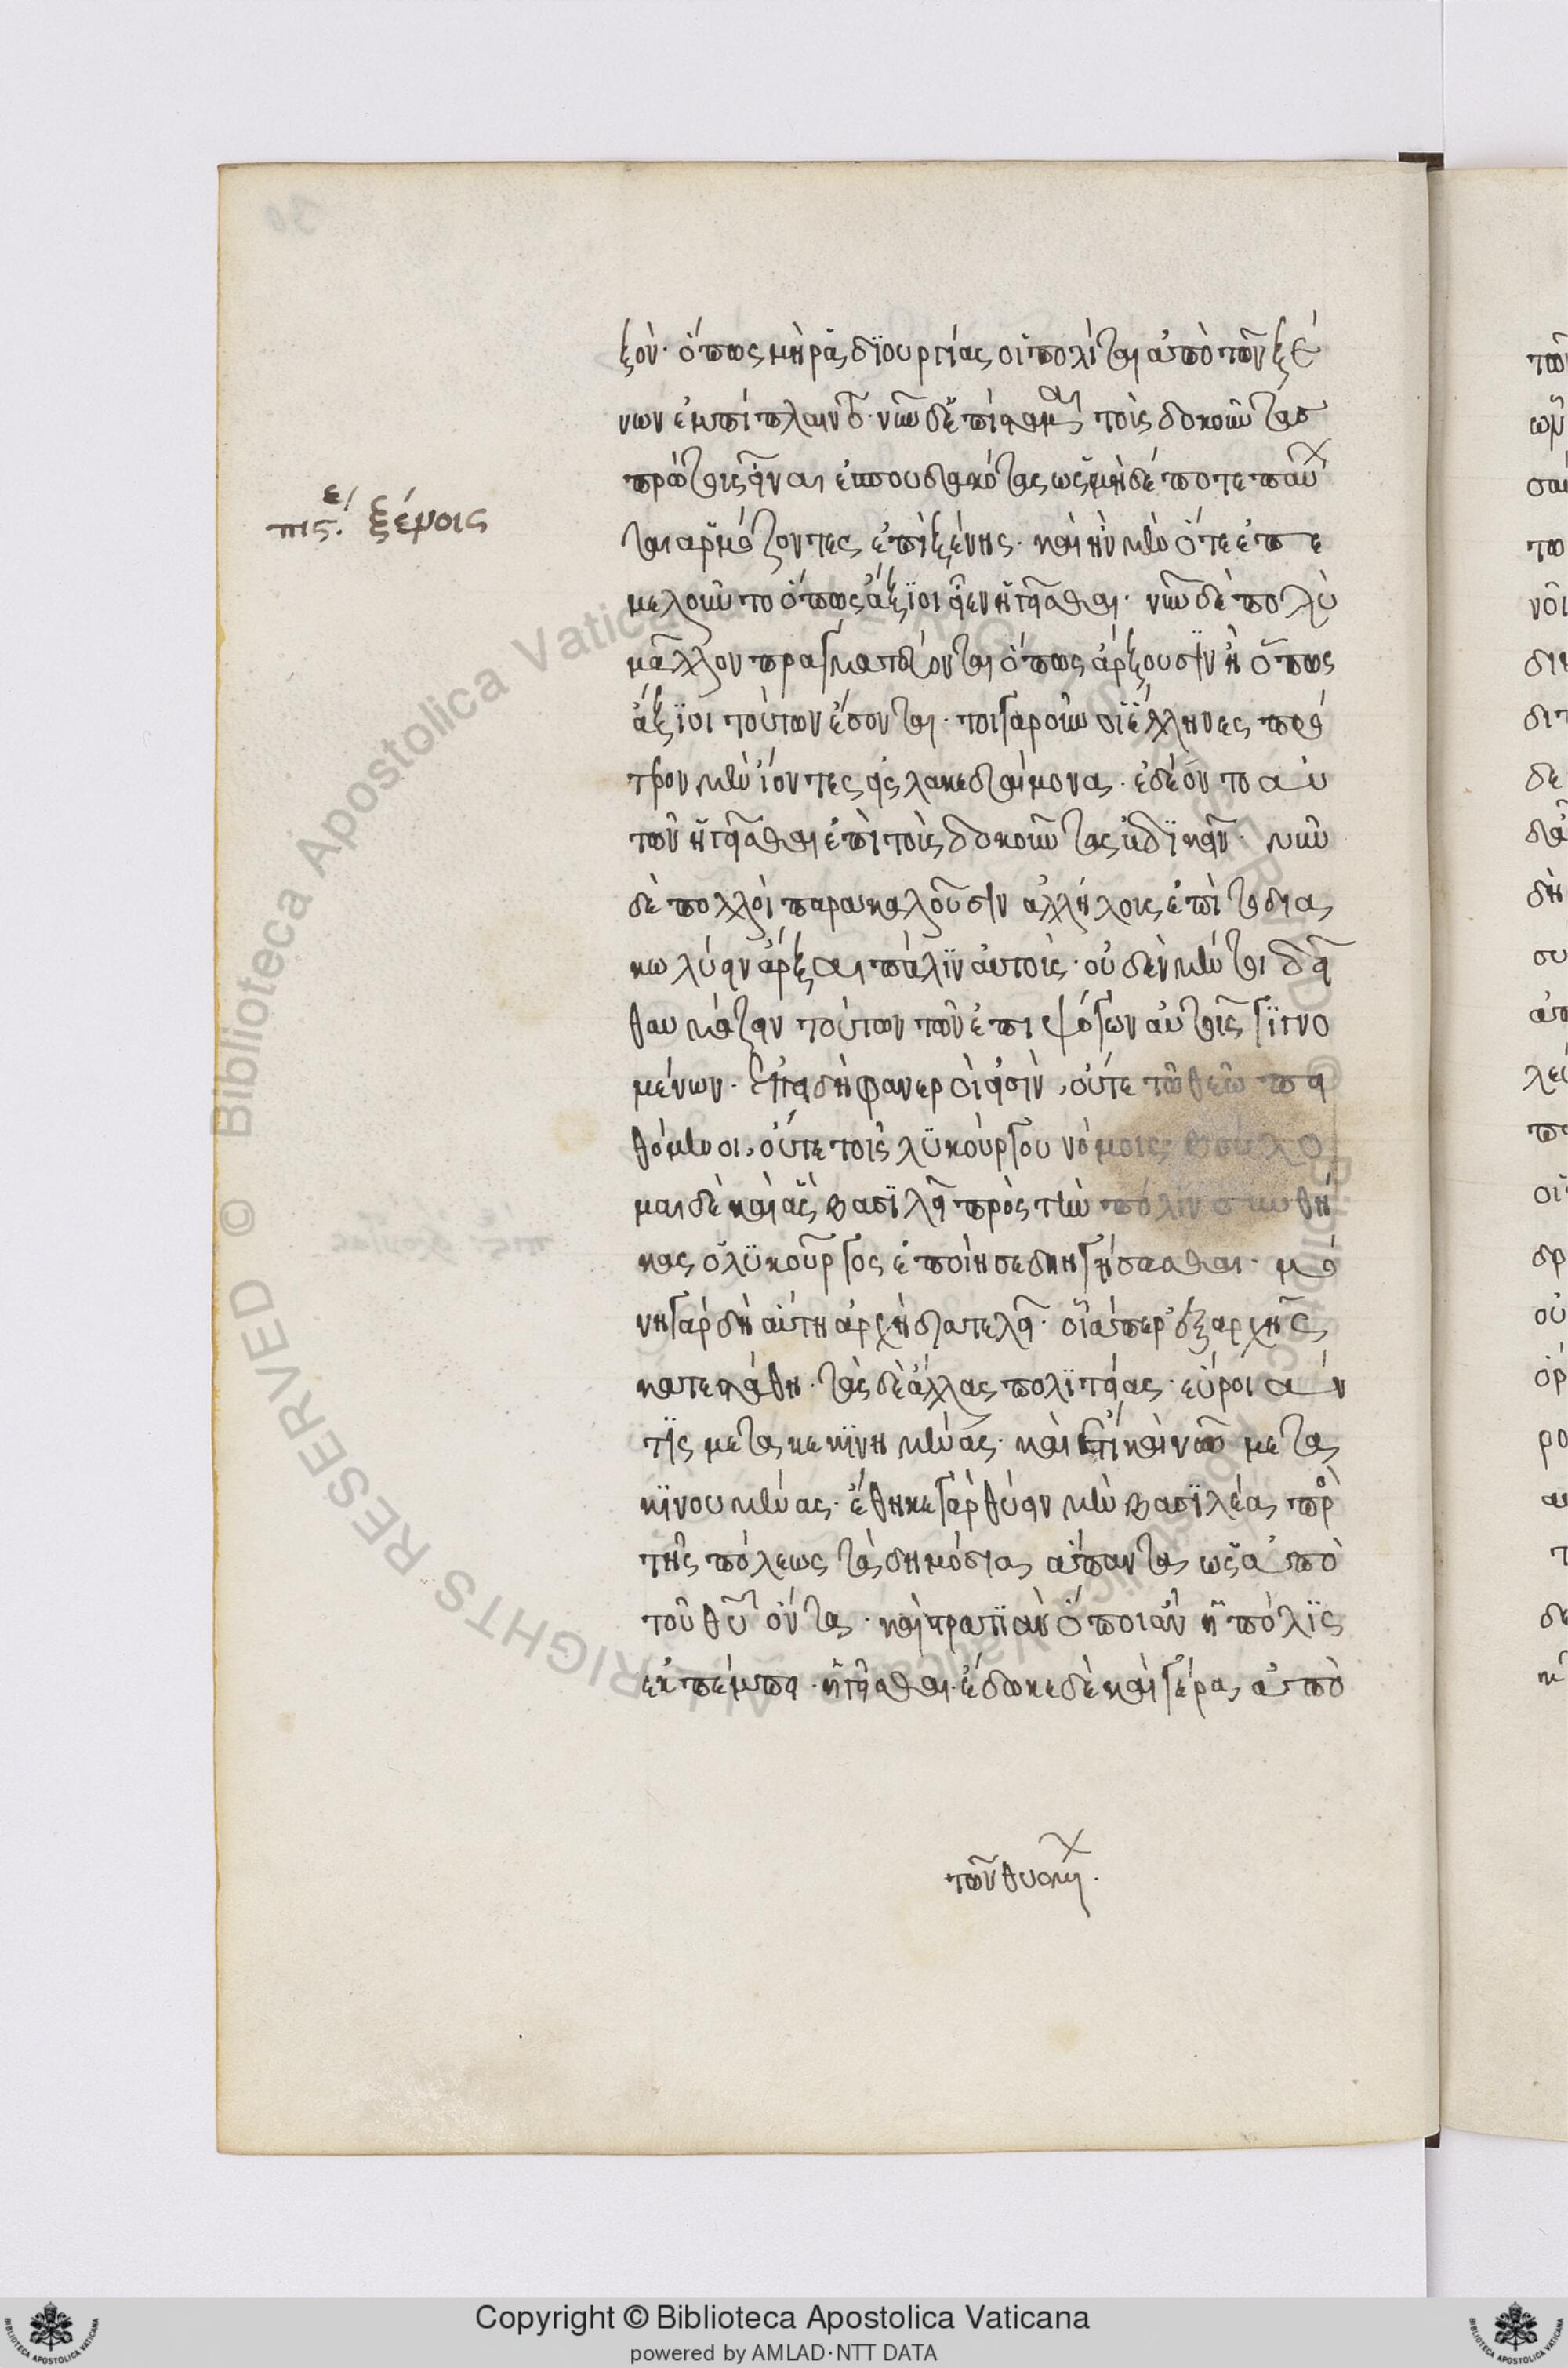 ξόν· ὅπως μὴ ῥᾳδϊουργίας οἱ πολίται ἀπὸ τῶν ξέ
νων ἐμπίπλαιντο· νῦν δ' ἐπίσταμαι τοὺς δοκοῦντας
πρώτους εἶναι ἐσπουδακότας ὡς μηδέποτε παύ
ται ἁρμόζοντες ἐπὶ ξένης· καὶ ἦν μὲν ὅτε ἐπε
μελοῦντο ὅπως ἄξϊοι εἶεν ἡγεῖσθαι· νῦν δὲ πολὺ
μᾶλλον πραγματεύονται ὅπως ἄρξουσϊν ἢ ὅπως
ἄξϊοι τούτων ἔσονται· τοιγαροῦν οἱ ἕλληνες πρό
τερον μὲν ἰόντες εἰς λακεδαίμονα· ἐδέοντο αὐ
τῶν ἡγεῖσθαι ἐπὶ τοὺς δοκοῦντας ἀδϊκεῖν· νῦν
δὲ πολλοὶ παρακαλοῦσϊν ἀλλήλους ἐπὶ τὸ δια
κωλύειν ἄρξαι πάλϊν αὐτούς· οὐδὲν μέντοι δεῖ
θαυμάζειν τούτων τῶν ἐπιψόγων αὐτοῖς γϊγνο
μένων· ἐπειδὴ φανεροί εἰσϊν, οὔτε τῶ θεῶ πει
θόμενοι, οὔτε τοῖς λϋκούργου νόμοις· βούλο
μαι δὲ καὶ ἃς βασϊλεῖ πρὸς τὴν πόλϊν συνθή
κας ὁ λϋκοῦργος ἐποίησε διηγήσασθαι· μό
νη γὰρ δὴ αὕτη ἀρχὴ διατελεῖ· οἵαπερ ἐξ ἀρχῆς
κατεστάθη· τὰς δὲ ἄλλας πολϊτείας· εὕροι ἄν
τϊς μετακεκϊνημένας· καὶ ἔτι καὶ νῦν μετα
κϊνουμένας· ἔθηκε γὰρ θύειν μὲν βασϊλέα πρὸ
τῆς πόλεως τὰ δημόσια ἅπαντα ὡς ἀπὸ
τοῦ θυ ὄντα· καὶ στρατϊὰν ὅποι ἂν ἡ πόλϊς
ἐκπέμπη· ἡγεῖσθαι· ἔδωκε δὲ καὶ γέρα ἀπὸ
τῶν θυομ.
πις. ξένοις